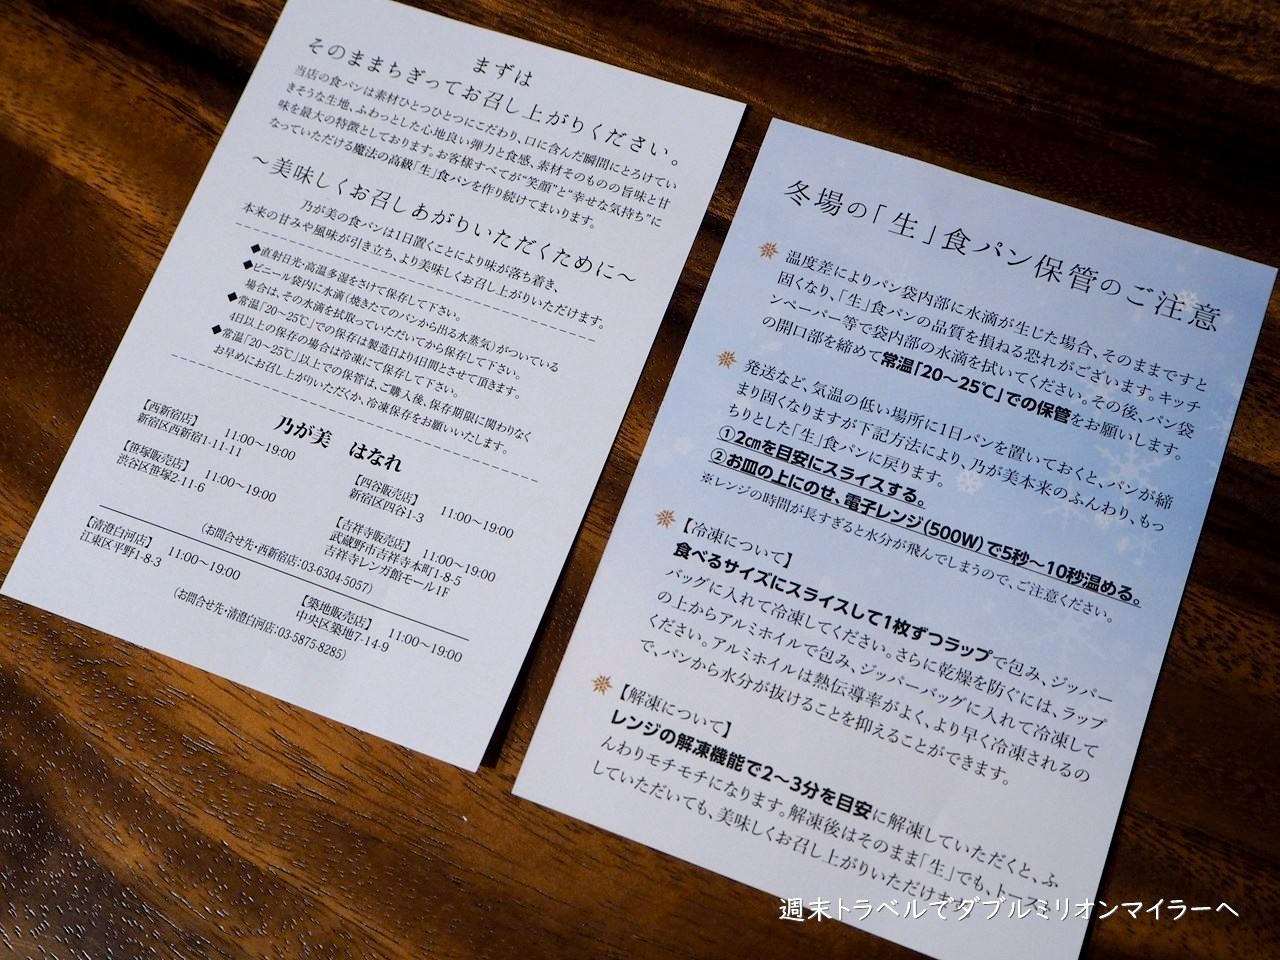 まずは
そのままちぎってお召し上がりください。
当店の食パンは素材ひとつひとつにこだわり、口に含んだ瞬間にとろけてい
きそうな生地、ふわっとした心地良い弾力と食感、素材そのものの旨味と甘
味を最大の特徴としております。お客様すべてが“笑顔”と“幸せな気持ち”に
なっていただける魔法の高級「生」食パンを作り続けてまいります。
～美味しくお召しあがりいただくために～
乃が美の食パンは1日置くことにより味が落ち着き、
本来の甘みや風味が引き立ち、より美味しくお召し上がりいただけます。
◆直射日光・高温多湿をさけて保存して下さい。
◆ビニール袋内に水滴(焼きたてのパンから出る水蒸気)がついている
場合は、その水滴を拭取っていただいてから保存して下さい。
◆常温「20～25℃」での保存は製造日より4日間とさせて頂きます。
4日以上の保存の場合は冷凍にて保存して下さい。
◆常温「20～25℃」以上での保管は、ご購入後、保存期限に関わりなく
お早めにお召し上がりいただくか、冷凍保存をお願いいたします。
乃が美 はなれ
【西新宿店】 11:00～19:00
新宿区西新宿1-11-11
【笹塚販売店】 11:00～19:00
渋谷区笹塚2-11-6
【四谷販売店】 11:00～19:00
新宿区四谷1-3
【吉祥寺販売店】 11:00～19:00
武蔵野市吉祥寺本町1-8-5
吉祥寺レンガ館モール1F
(お問合せ先・西新宿店:03-6304-5057)
【清澄白河店】 11:00～19:00
江東区平野1-8-3
【築地販売店】 11:00～19:00
中央区築地7-14-9
(お問合せ先・清澄白河店:03-5875-8285)
冬場の「生」食パン保管のご注意
温度差によりパン袋内部に水滴が生じた場合、そのままですと
固くなり、「生」食パンの品質を損ねる恐れがございます。キッチ
ンペーパー等で袋内部の水滴を拭いてください。その後、パン袋
の開口部を締めて常温「20～25℃」での保管をお願いします。
発送など、気温の低い場所に1日パンを置いておくと、パンが締
まり固くなりますが下記方法により、乃が美本来のふんわり、もっ
ちりとした「生」食パンに戻ります。
①2㎝を目安にスライスする。
②お皿の上にのせ、電子レンジ(500W)で5秒～10秒温める。
※レンジの時間が長すぎると水分が飛んでしまうので、ご注意ください。
【冷凍について】
食べるサイズにスライスして1枚ずつラップで包み、ジッパー
バッグに入れて冷凍してください。さらに乾燥を防ぐには、ラップ
の上からアルミホイルで包み、ジッパーバッグに入れて冷凍して
ください。アルミホイルは熱伝導率がよく、より早く冷凍されるの
で、パンから水分が抜けることを抑えることができます。
【解凍について】
レンジの解凍機能で2～3分を目安に解凍していただくと、ふ
んわりモチモチになります。解凍後はそのまま「生」でも、トースト
していただいても、美味しくお召し上がりいただけます。
週末トラベルでダブルミリオンマイラーへ